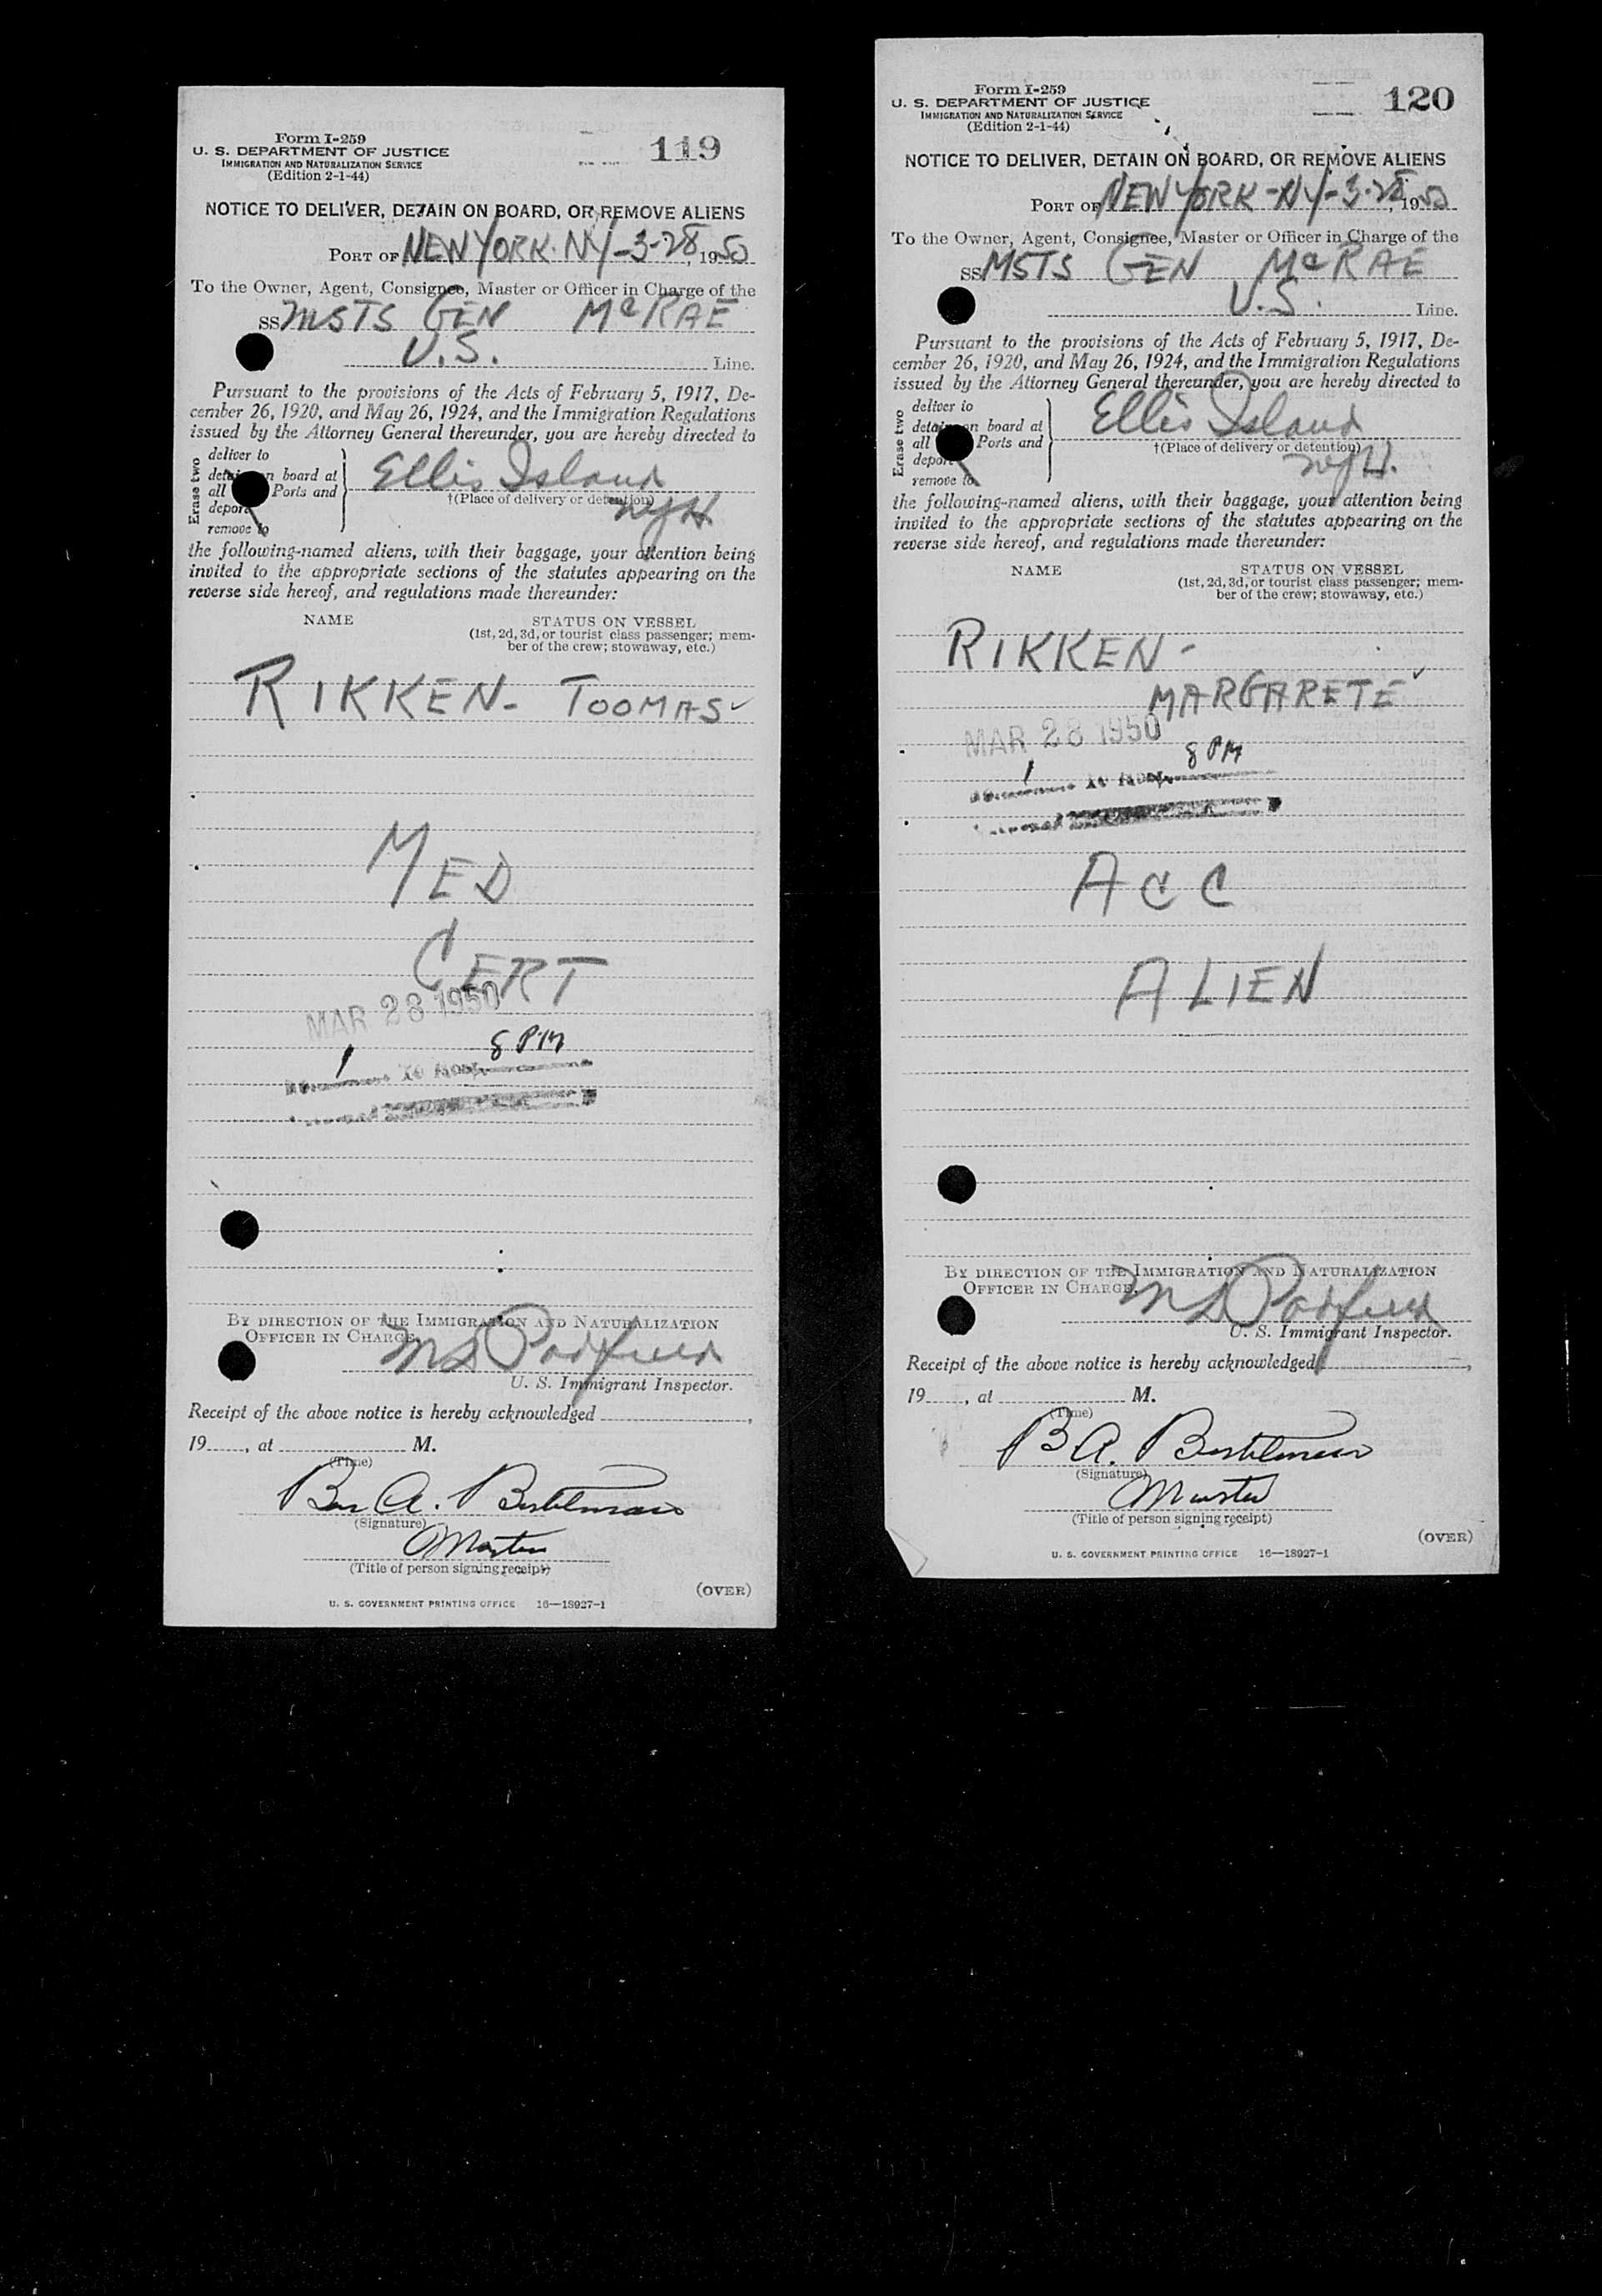 Form I-259
U. S. DEPARTMENT OF JUSTICE
IMMIGRATION AND NATURALIZATION SERVICE
(Edition 2-1-44)
119
NOTICE TO DELIVER, DETAIN ON BOARD, OR REMOVE ALIENS
PORT OF NEW YORK. NY - 3-28, 1950
To the Owner, Agent, Consignee, Master or Officer in Charge of the
SS MSTS GEN McRAE
U.S. Line.
Pursuant to the provisions of the Acts of February 5, 1917, De-
cember 26, 1920, and May 26, 1924, and the Immigration Regulations
issued by the Attorney General thereunder, you are hereby directed to
Erase two
deliver to
detain on board at
all Ports and
deport
remove to
Ellis Island
†(Place of delivery or detention)
the following-named aliens, with their baggage, your attention being
invited to the appropriate sections of the statutes appearing on the
reverse side hereof, and regulations made thereunder:
NAME
STATUS ON VESSEL
(1st, 2d, 3d, or tourist class passenger; mem-
ber of the crew; stowaway, etc.)
RIKKEN - TOOMAS
MED
CERT
MAR 28 1950
1 8 PM
BY DIRECTION OF THE IMMIGRATION AND NATURALIZATION
OFFICER IN CHARGE.
U. S. Immigrant Inspector.
Receipt of the above notice is hereby acknowledged
19 , at M.
(Time)
(Signature)
Master
(Title of person signing receipt)
(OVER)
U. S. GOVERNMENT PRINTING OFFICE 16—18927-1
Form I-259
U. S. DEPARTMENT OF JUSTICE
IMMIGRATION AND NATURALIZATION SERVICE
(Edition 2-1-44)
120
NOTICE TO DELIVER, DETAIN ON BOARD, OR REMOVE ALIENS
PORT OF NEW YORK - NY - 3-28, 1950
To the Owner, Agent, Consignee, Master or Officer in Charge of the
SS MSTS GEN McRAE
U.S. Line.
Pursuant to the provisions of the Acts of February 5, 1917, De-
cember 26, 1920, and May 26, 1924, and the Immigration Regulations
issued by the Attorney General thereunder, you are hereby directed to
Erase two
deliver to
detain on board at
all Ports and
deport
remove to
Ellis Island
†(Place of delivery or detention)
the following-named aliens, with their baggage, your attention being
invited to the appropriate sections of the statutes appearing on the
reverse side hereof, and regulations made thereunder:
NAME
STATUS ON VESSEL
(1st, 2d, 3d, or tourist class passenger; mem-
ber of the crew; stowaway, etc.)
RIKKEN -
MARGARETE
MAR 28 1950
1 8 PM
ACC
ALIEN
BY DIRECTION OF THE IMMIGRATION AND NATURALIZATION
OFFICER IN CHARGE.
U. S. Immigrant Inspector.
Receipt of the above notice is hereby acknowledged
19 , at M.
(Time)
(Signature)
Master
(Title of person signing receipt)
(OVER)
U. S. GOVERNMENT PRINTING OFFICE 16—18927-1